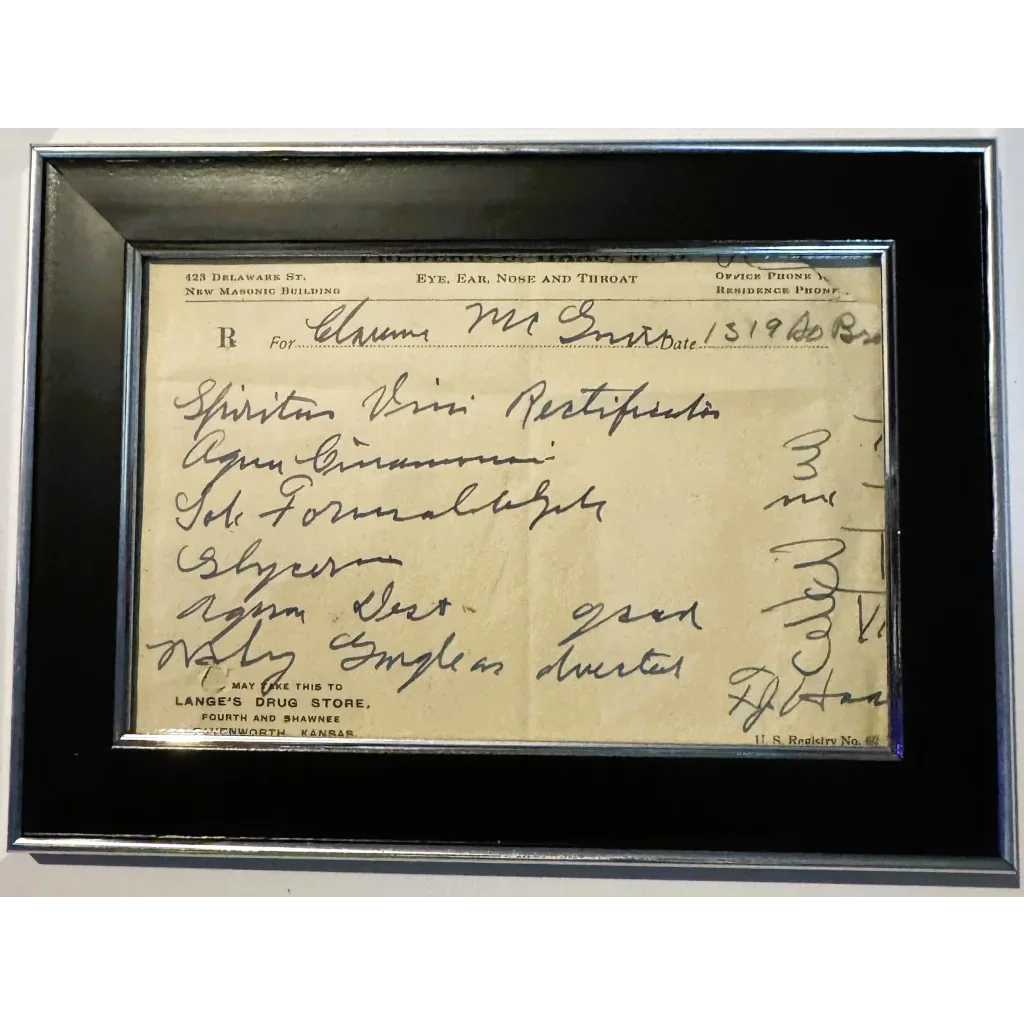 423 DELAWARE ST.
NEW MASONIC BUILDING
EYE, EAR, NOSE AND THROAT
OFFICE PHONE
RESIDENCE PHONE
R For Clarence Mc Date 1319 So Bro
Spiritus Vini Rectificatis
Aqua Cinamomi
Sol Formaldehyde
Glycerin
Aqua Dest qsad
Gargle as directed
MAY TAKE THIS TO
LANGE'S DRUG STORE,
FOURTH AND SHAWNEE
LEAVENWORTH, KANSAS
FJ Haa
U. S. Registry No.